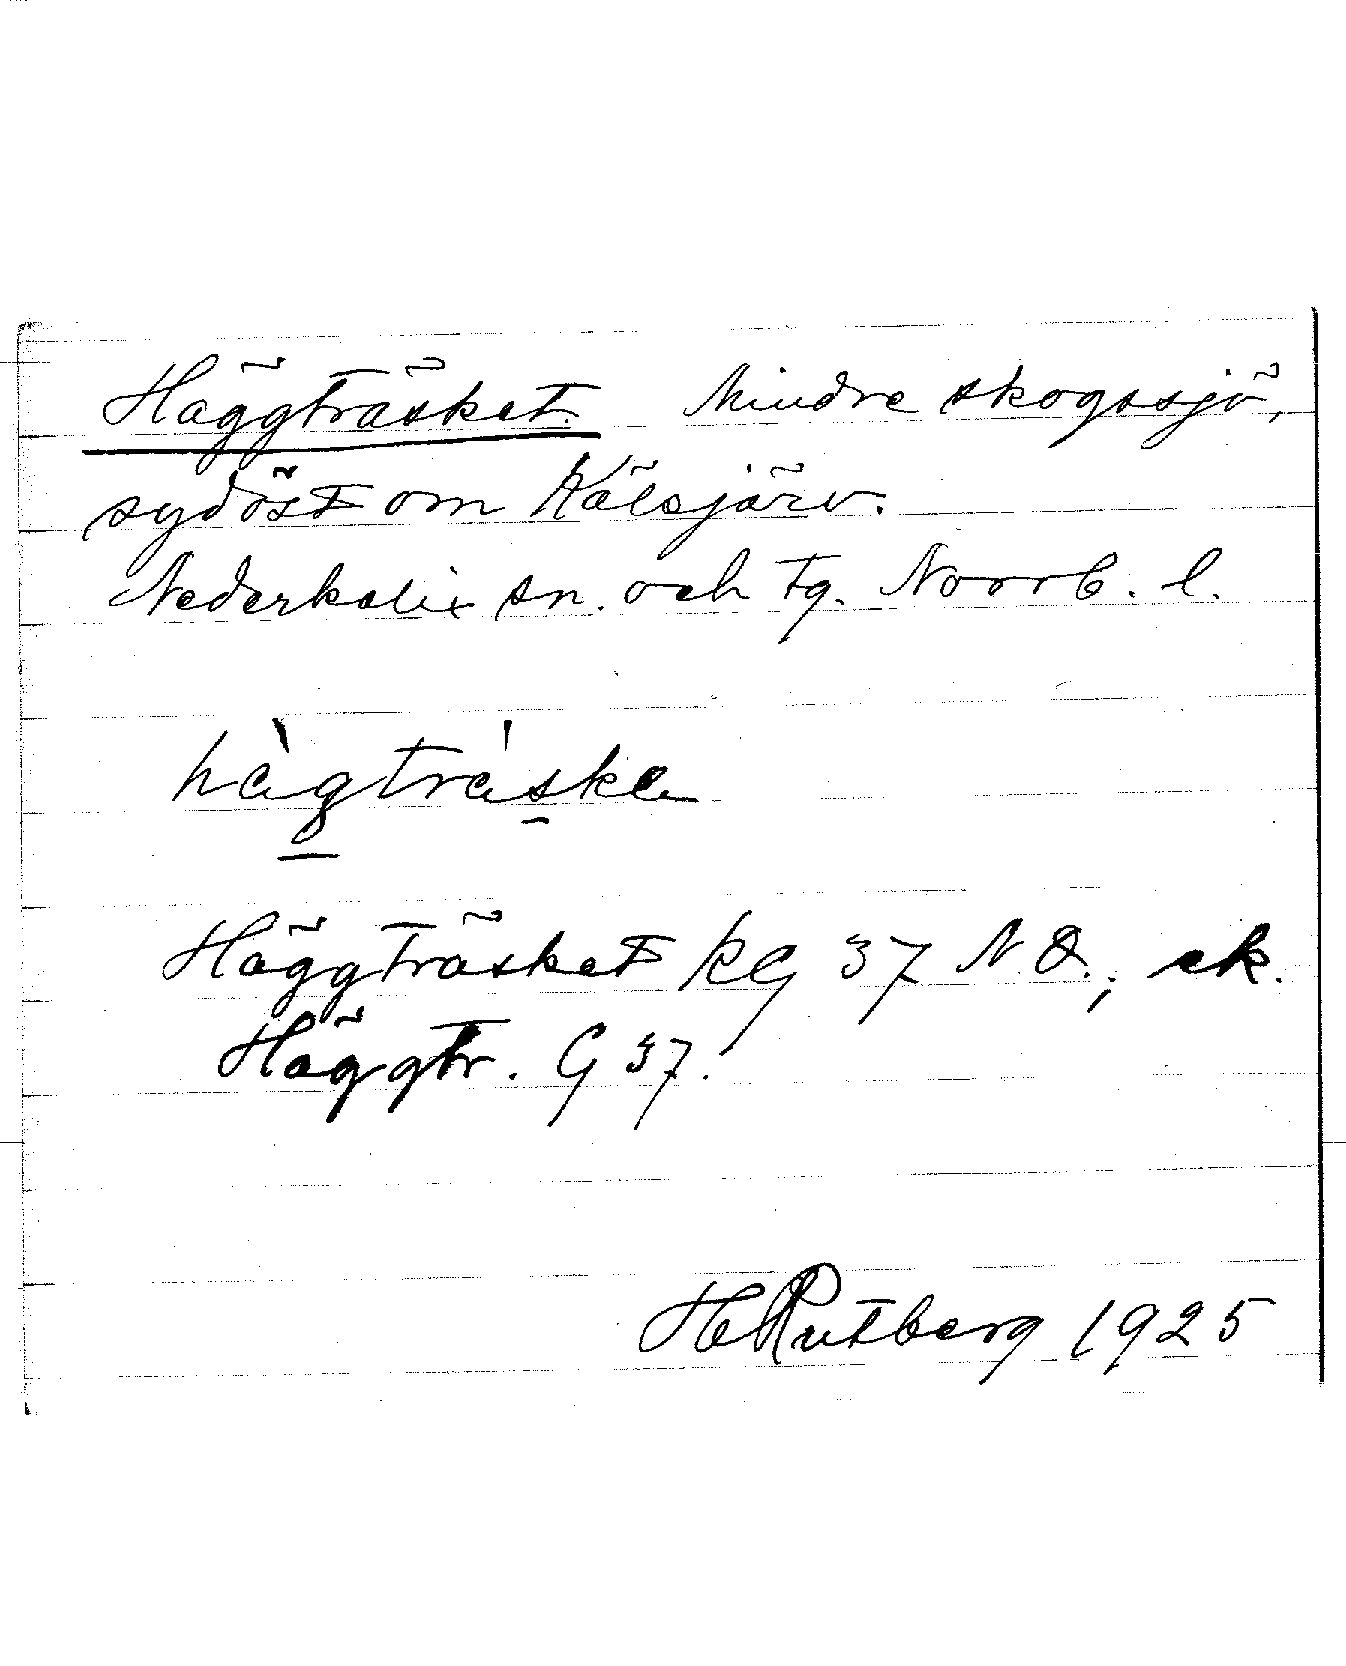 Häggträsket. Mindre skogssjö,
sydöst om Kälsjärv.
Nederkalix sn. och tg. Norrb. l.
hàgtráska
Häggträsket KG 37 N.O.; ek.
Häggtr. G 37.
H Rutberg 1925